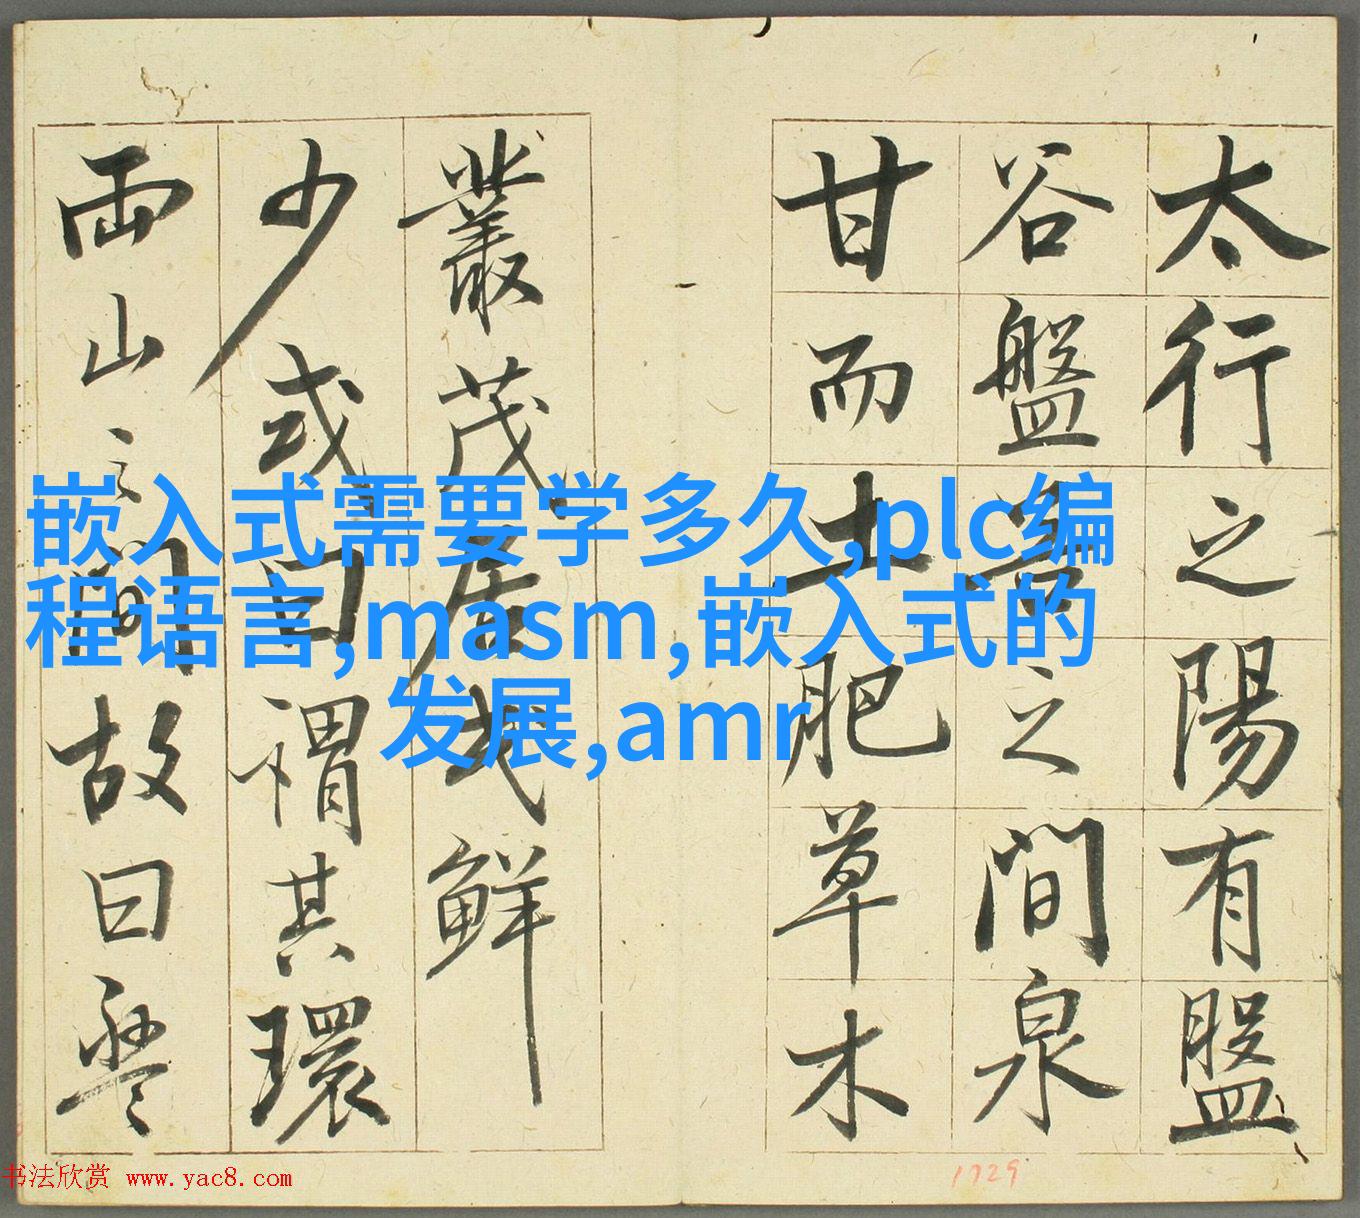 太行之陽有盤
谷盤谷之間泉
甘而土肥草木
叢茂居民鮮
少或曰謂其環
两山之間故曰盤
嵌入式需要学多久,plc编
程语言,masm,嵌入式的
发展,amr
书法欣赏 www.yac8.com
1729